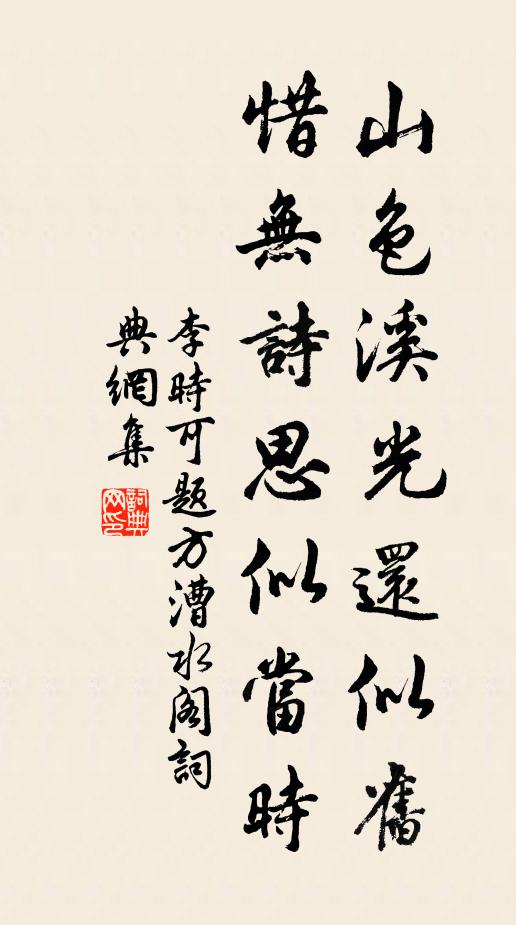 山色溪光還似舊
惜無詩思似當時
李時可題方漕水閣詞
典網集
詞典網印